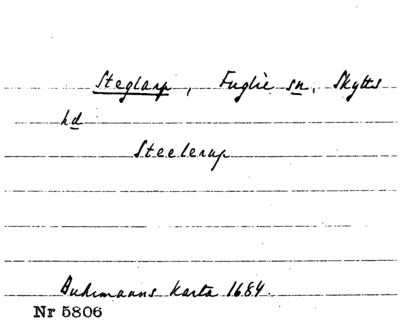 Steglarp, Fuglie sn, Skytts
hd
Steelerup
Buhrmanns karta 1684.
Nr 5806